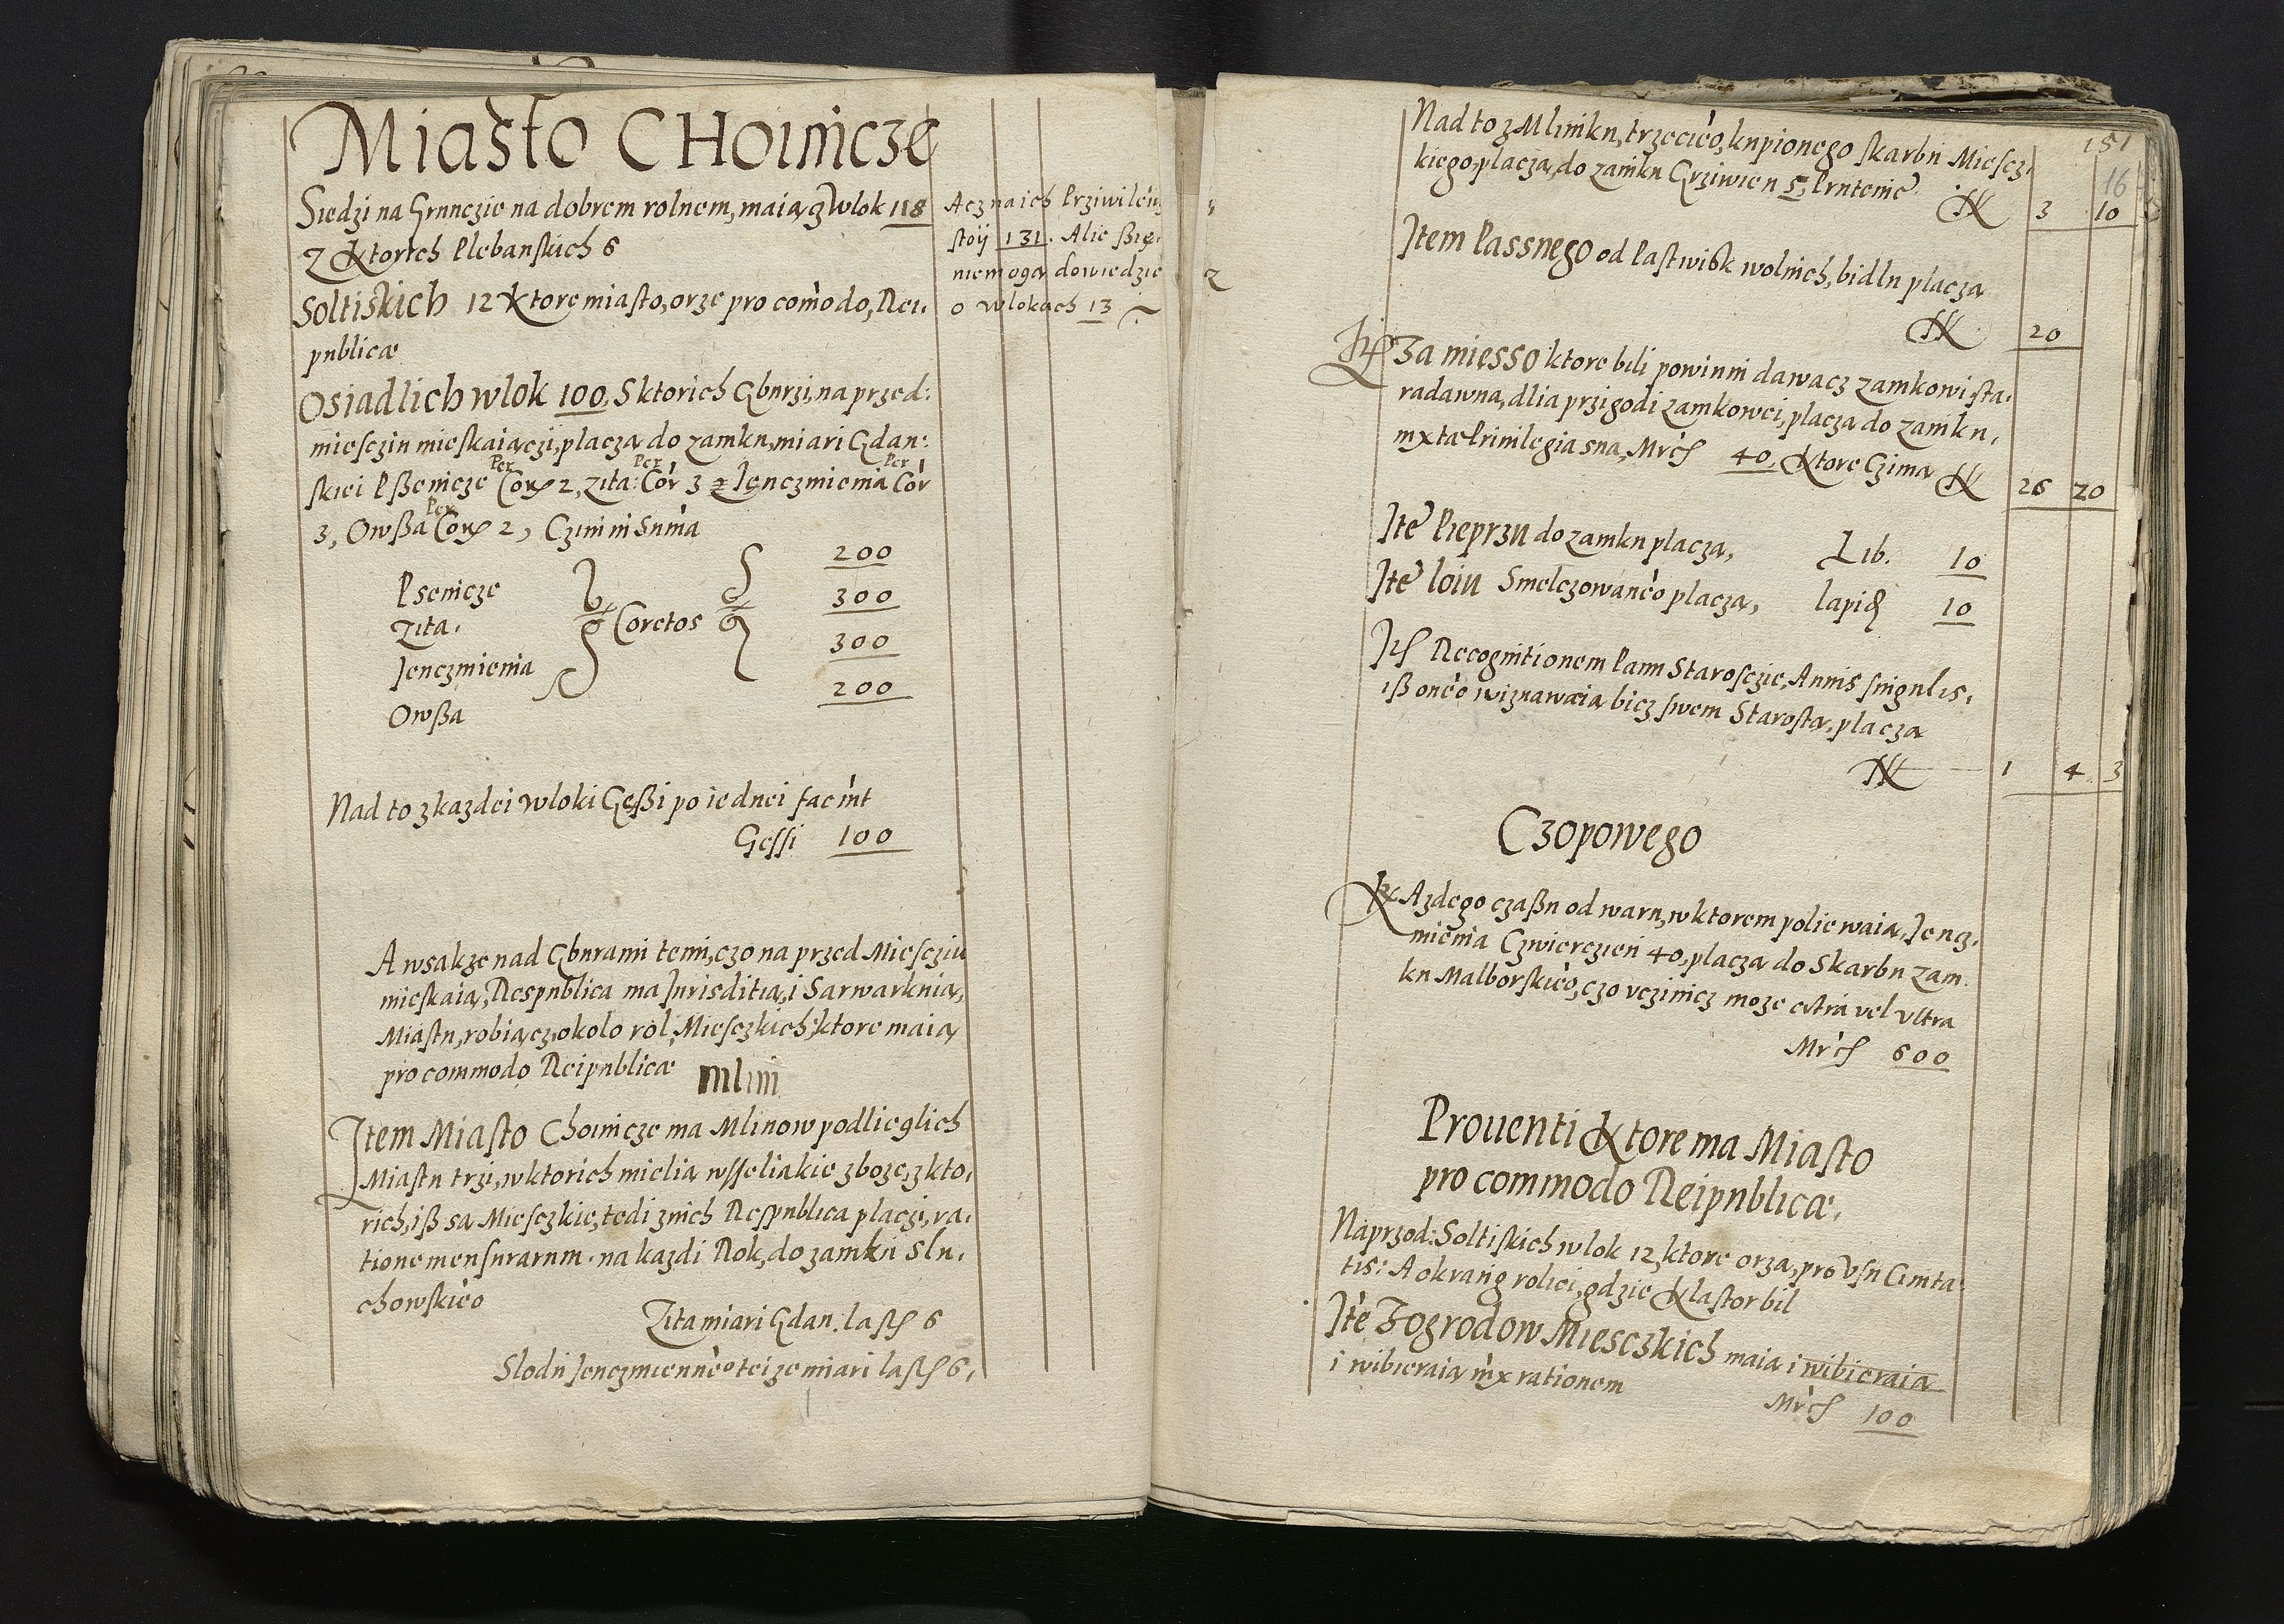 Miasto CHoinicze
Siedzi na Grunczie na dobrem rolnem, maią g wlok 118
Z ktorich Plebanskich 6
Soltiskich 12 ktore miasto, orze pro comodo, Rei.
publicæ
Osiadlich wlok 100, S ktorich Gburzi, na przed:
miesczin mieskaiączÿ, placzą do zamku, miari Gdan:
skiei Pßenicze Per Corz 2, zita: Per Cor 3 z Jęnczmienia Per Cor
3, Owßa Per Corz 2, Czini in Suma
Psenicze 200
Zita. Coretos 300
Jenczmienia 300
Owßa 200
Nad to z kazdei wloki Gęßi po iednei faciunt
Gessi 100
A wsakze nad Gburami temi, czo na przed Miesciu
mieskaią, Respublica ma Jurisditią, i Sarwarknią,
Miastu, robiącz, okolo rol, Miesczkich, ktore maią
pro commodo Reipublicæ
Mlini
Item Miasto Choinicze ma Mlinow podlieglich
Miastu trzi, w ktorich mielią wsseliakie zboze, z kto,
rich, iß sa Miesczkie, tedi znich Respublica placzi, ra,
tione mensurarum. na kazdi Rok, do zamku Slu,
chowskieo
Zita miari Gdan. last 6
Slodu Jenczmienneo teize miari last 6,
Acz na ich Priwileiu
stoÿ 131. Alie ßię
niemogą dowiedzie
o wlokach 13
151
16
Nad to z Mlinku, trzecieo, kupionego skarbu Miescz,
kiego, placzą, do zamku Grziwien 5, Prutenie
3 10
Item Passnego od Pastwisk wolnich, bidlu placzą
20
Za miesso ktore bili powinni dawacz zamkowi sta,
radawna, dlia przigodi zamkowei, placzą do zamku,
iuxta Priuilegia sua, Mrc 40, ktore Czimą
26 20
Ite Pieprzu do zamku placzą, Lib. 10
Ite loiu Smelczowaneo placzą, lapid 10
Recognitionem Panu Starosczie, Annis singulis,
iß oneo wiznawaią bicz swem Starostą, placzą
1 4 3
Czopowego
KAzdego czaßu od waru, w ktorem poliewaią, Jencz,
mienia Czwierczien 40, placzą do Skarbu Zam
ku Malborskieo, czo vczinicz moze citra vel vltra
Mrc 600
Prouenti ktore ma Miasto
pro commodo Reipublicæ.
Naprzod: Soltiskich wlok 12, ktore orzą, pro Vsu Ciuita:
tis: A okrąng roliei, gdzie klastor bil
Ite Z ogrodow Miesczkich maią i wibieraią
i wibieraią iux rationem
Mrc 100